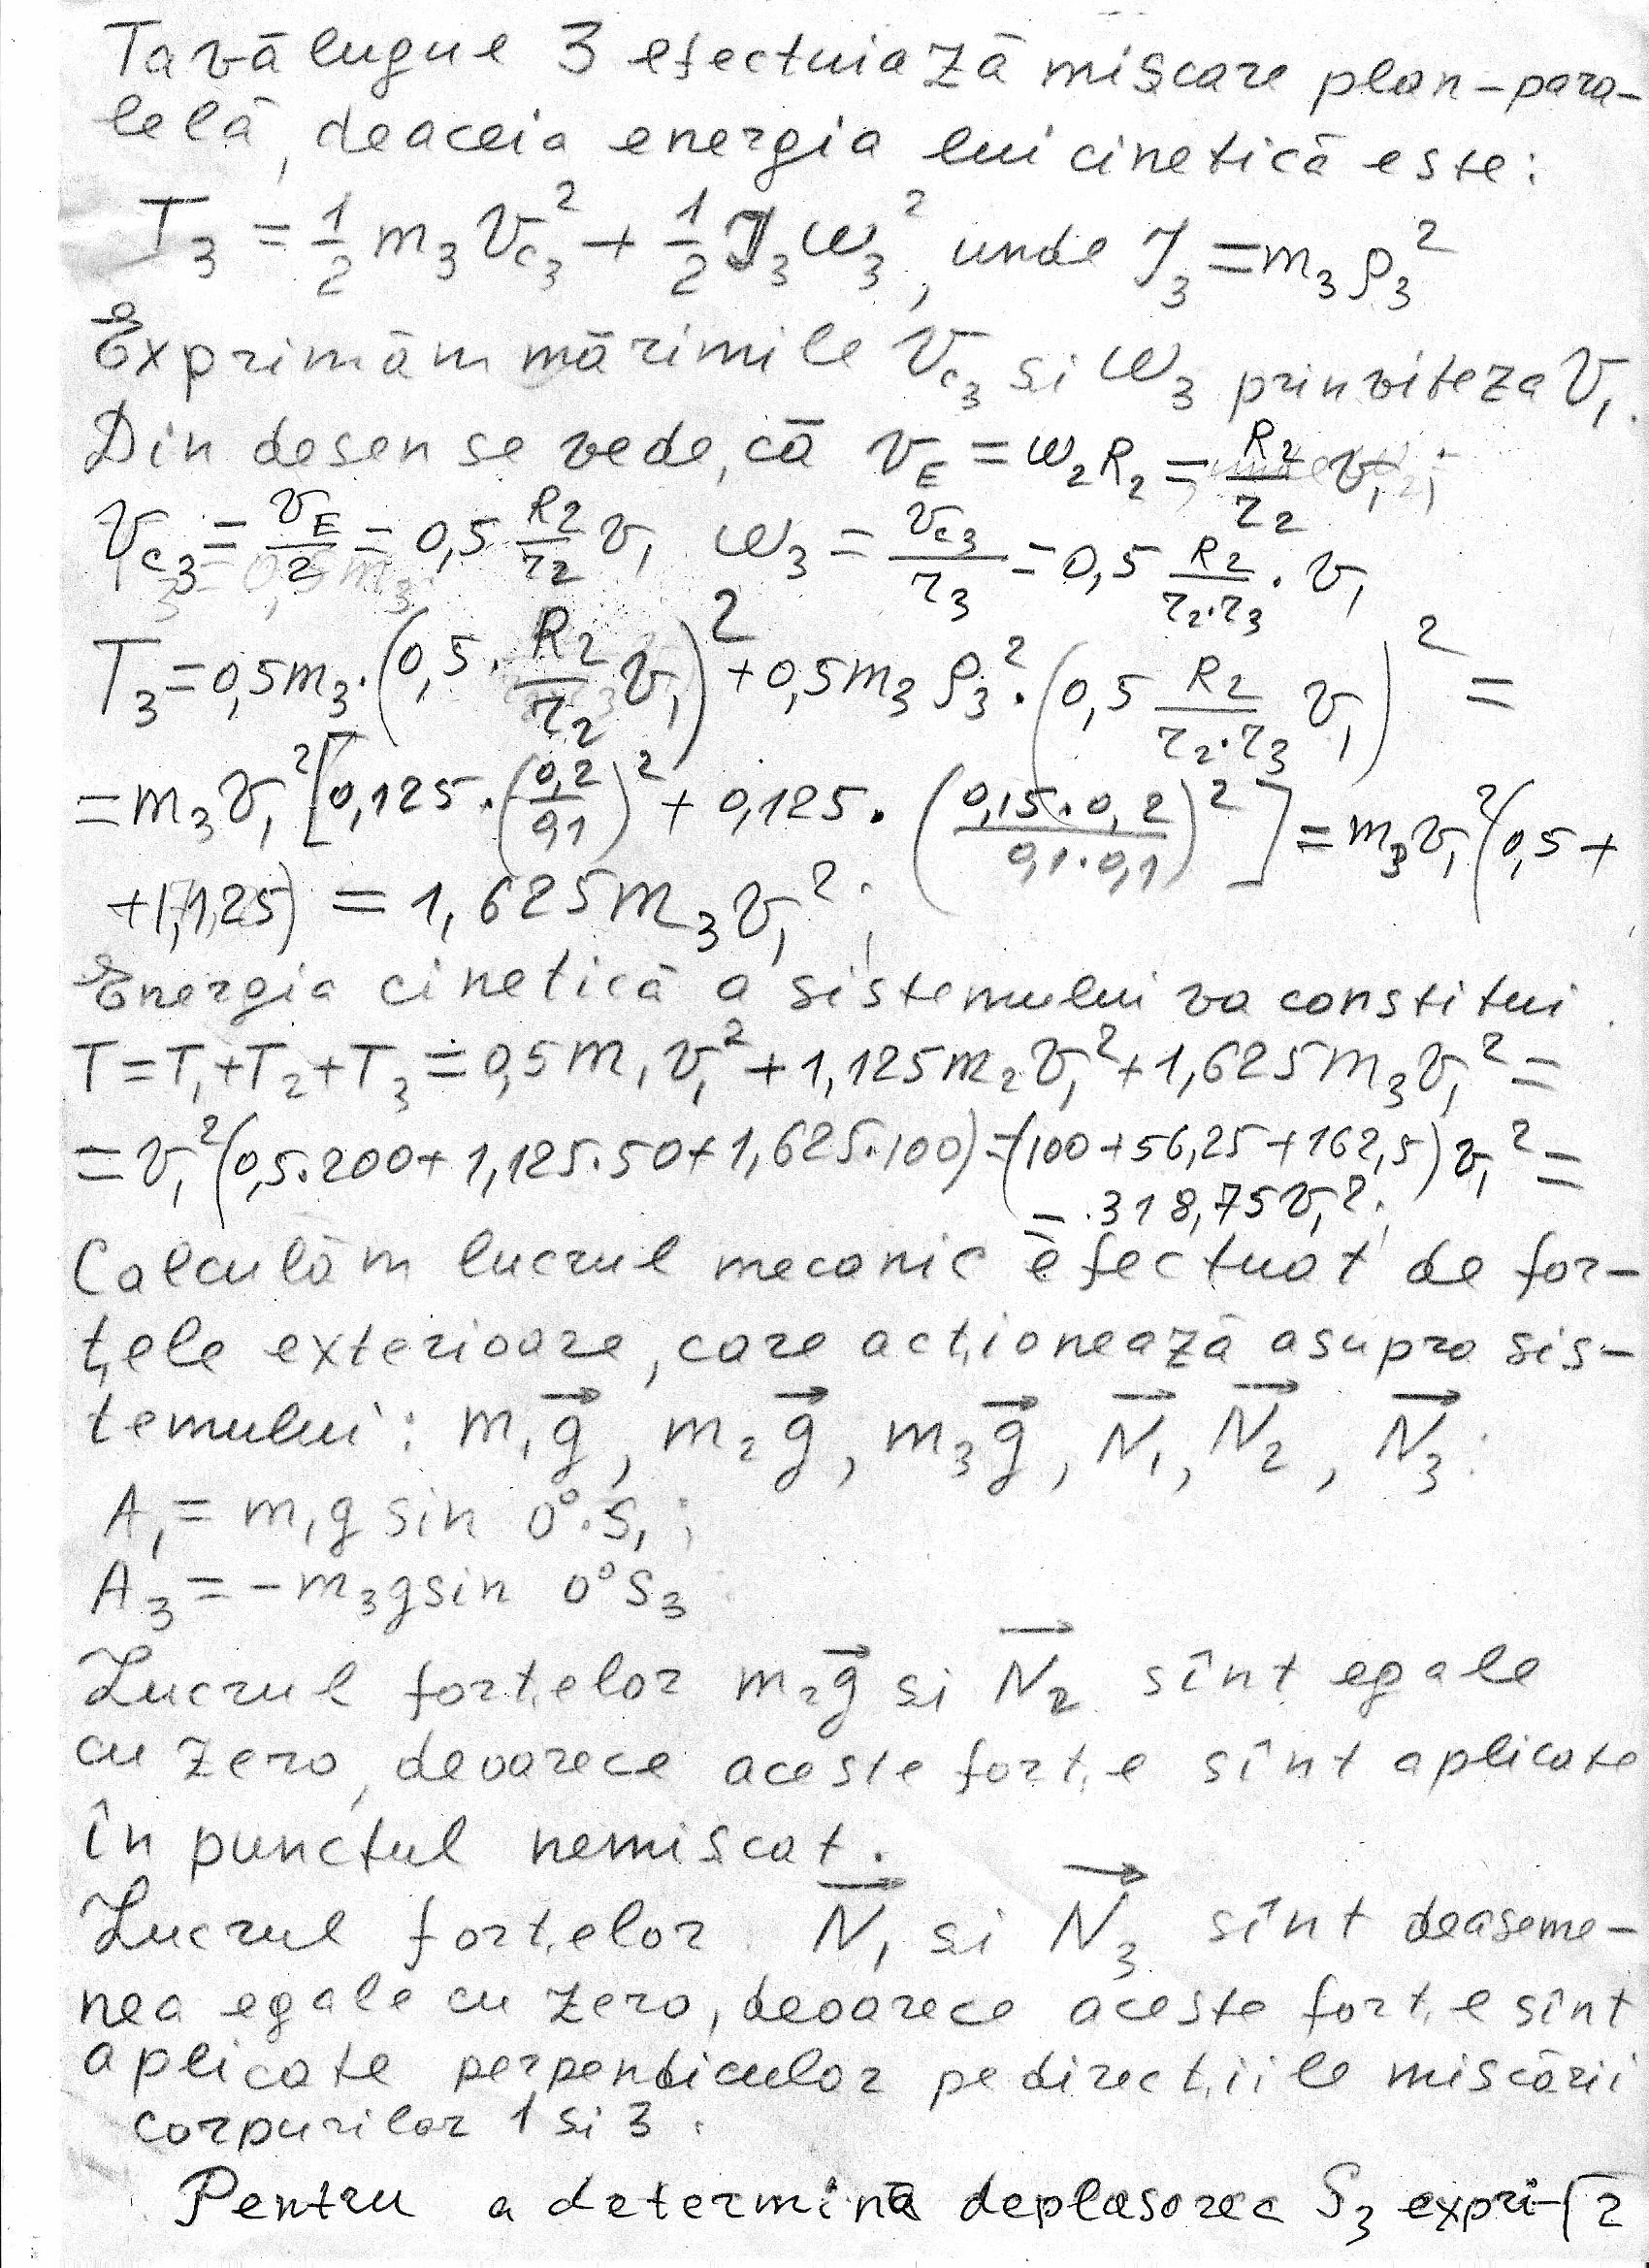 Tavălugul 3 efectuiază mișcare plan-para-
lelă, deaceia energia lui cinetică este:
T₃ = 1/2 m₃ v_c₃² + 1/2 J₃ ω₃², unde J₃ = m₃ ρ₃²
Exprimăm mărimile v_c₃ si ω₃ prin viteza v₁.
Din desen se vede, că v_E = ω₂R₂ = R₂/r₂ v₁;
v_c₃ = v_E/2 = 0,5 R₂/r₂ v₁ ω₃ = v_c₃/r₃ = 0,5 R₂/(r₂·r₃) · v₁
T₃ = 0,5m₃·(0,5·R₂/r₂ v₁)² + 0,5m₃ρ₃²·(0,5 R₂/(r₂·r₃) v₁)² =
= m₃v₁²[0,125·(0,2/0,1)² + 0,125·(0,15·0,2/0,1·0,1)²] = m₃v₁²(0,5+
+1,125) = 1,625m₃v₁²;
Energia cinetică a sistemului va constitui.
T = T₁+T₂+T₃ = 0,5m₁v₁² + 1,125m₂v₁² + 1,625m₃v₁² =
= v₁²(0,5·200+1,125·50+1,625·100) = (100+56,25+162,5)v₁² =
= 318,75v₁².
Calculăm lucrul mecanic efectuat de for-
țele exterioare, care acționează asupra sis-
temului: m₁g⃗, m₂g⃗, m₃g⃗, N⃗₁, N⃗₂, N⃗₃:
A₁ = m₁g sin 0°·S₁;
A₃ = -m₃g sin 0° S₃
Lucrul forțelor m₂g⃗ si N⃗₂ sînt egale
cu zero, deoarece aceste forțe sînt aplicate
în punctul nemiscat.
Lucrul forțelor N⃗₁ si N⃗₃ sînt deaseme-
nea egale cu zero, deoarece aceste forțe sînt
aplicate perpendicular pe direcțiile miscării
corpurilor 1 si 3.
Pentru a determina deplasarea S₃ expri- 2